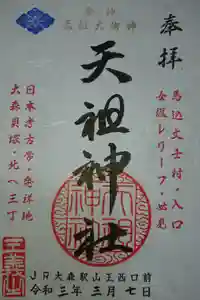 奉拝
馬込文士村・入口
女優レリーフ・必見
祭神
天照大御神
天祖神社
日本考古学・発祥地
大森貝塚・北へ三丁
JR大森駅山王西口前
令和三年三月七日